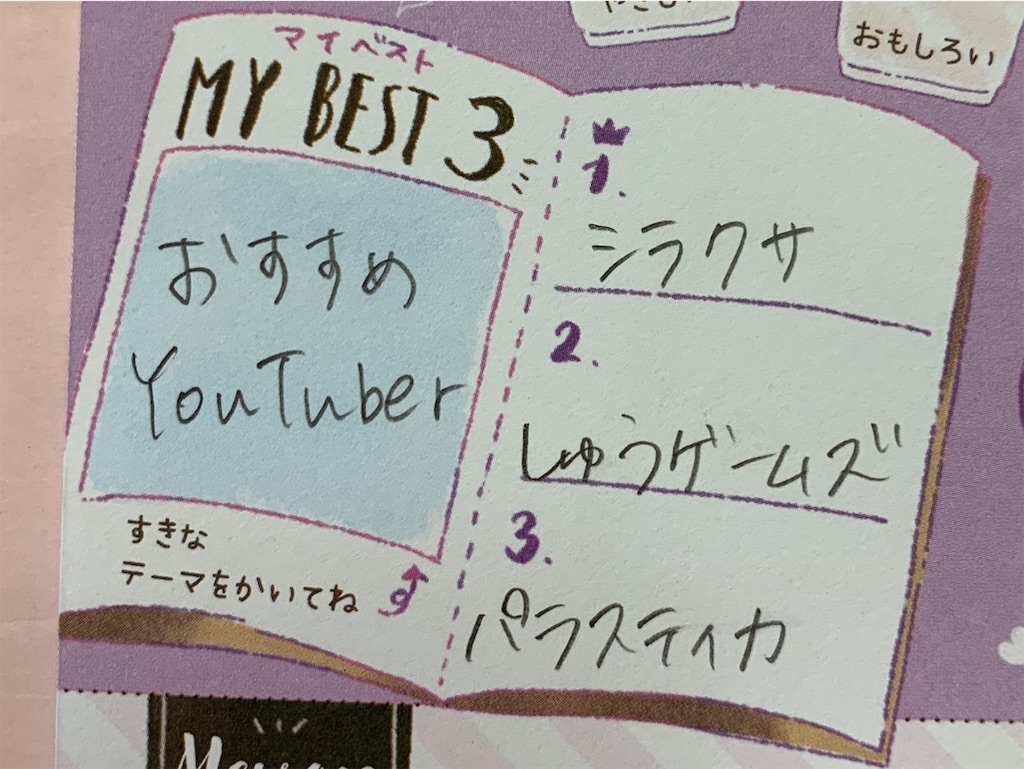 おもしろい
マイベスト
MY BEST 3
おすすめ
YouTuber
すきな
テーマをかいてね
1.
シラクサ
2.
しゅうゲームズ
3.
パラスティカ